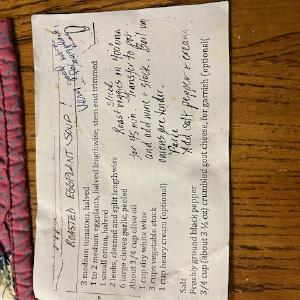 ROASTED EGGPLANT SOUP!
3 medium tomatoes, halved
1 to 2 medium eggplants, halved lengthwise, stem end trimmed
1 small onion, halved
2 leeks, cleaned and split lengthwise
6 large cloves garlic, peeled
About 1/4 cup olive oil
1 cup dry white wine
3 cups vegetable stock
1 cup heavy cream (optional)
Salt
Freshly ground black pepper
3/4 cup (about 3 ½ oz) crumbled goat cheese, for garnish (optional(
sliced
Roast veggies in 400 oven
for 45 min. Transfer to pot
and add wine + stock. Boil un
onions are tender.
Puree
Add salt pepper + cream